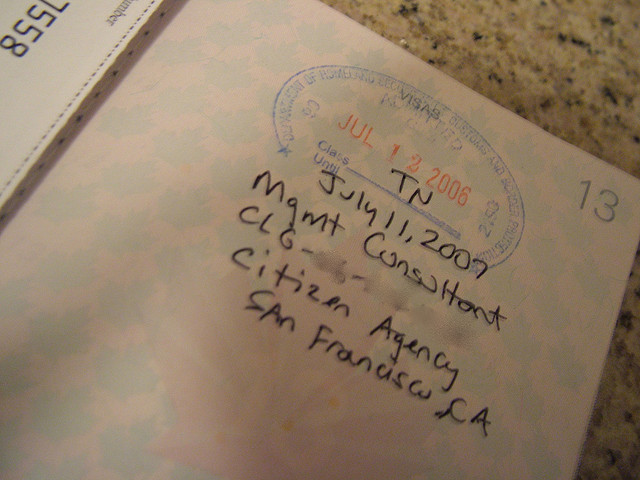 7558
umber
13
DEPARTMENT OF HOMELAND SECURITY CUSTOMS AND BORDER PROTECTION
VISAS
JUL 12 2006
Class TN
Until July 11, 2007
Mgmt Consultant
Citizen Agency
San Francisco, CA